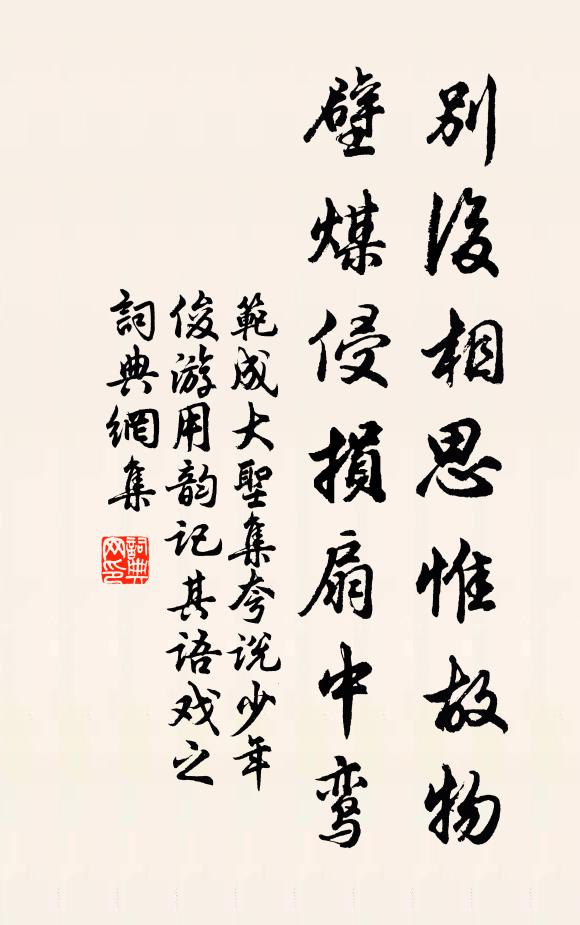 別後相思惟故物
壁煤侵損扇中鸾
範成大聖集夸说少年
俊游用韵记其语戏之
詞典網集
詞典
网印